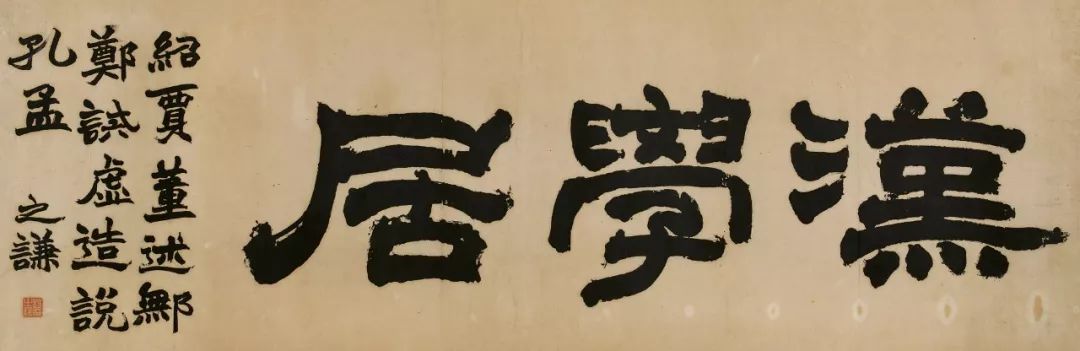 漢學居
紹賈董述鄦
鄭誡虛造說
孔孟
之謙